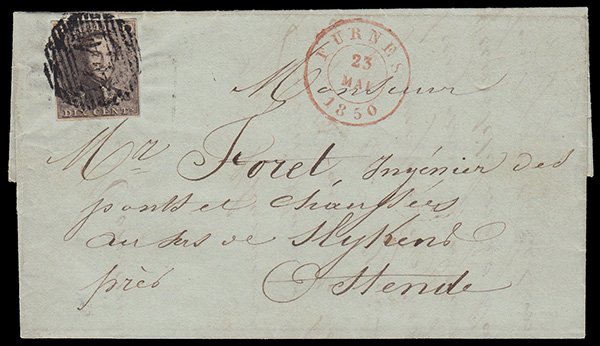 DIX CENTS
FURNES
23
MAI
1850
Monsieur
Mr Foret, Ingénier des
ponts et chaussées
au sas de Slykens
près Ostende